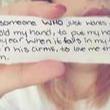 someone WHO just wants
old my hand, to put my ha
year when it falls in my f
n in his arms, to love me th
m.